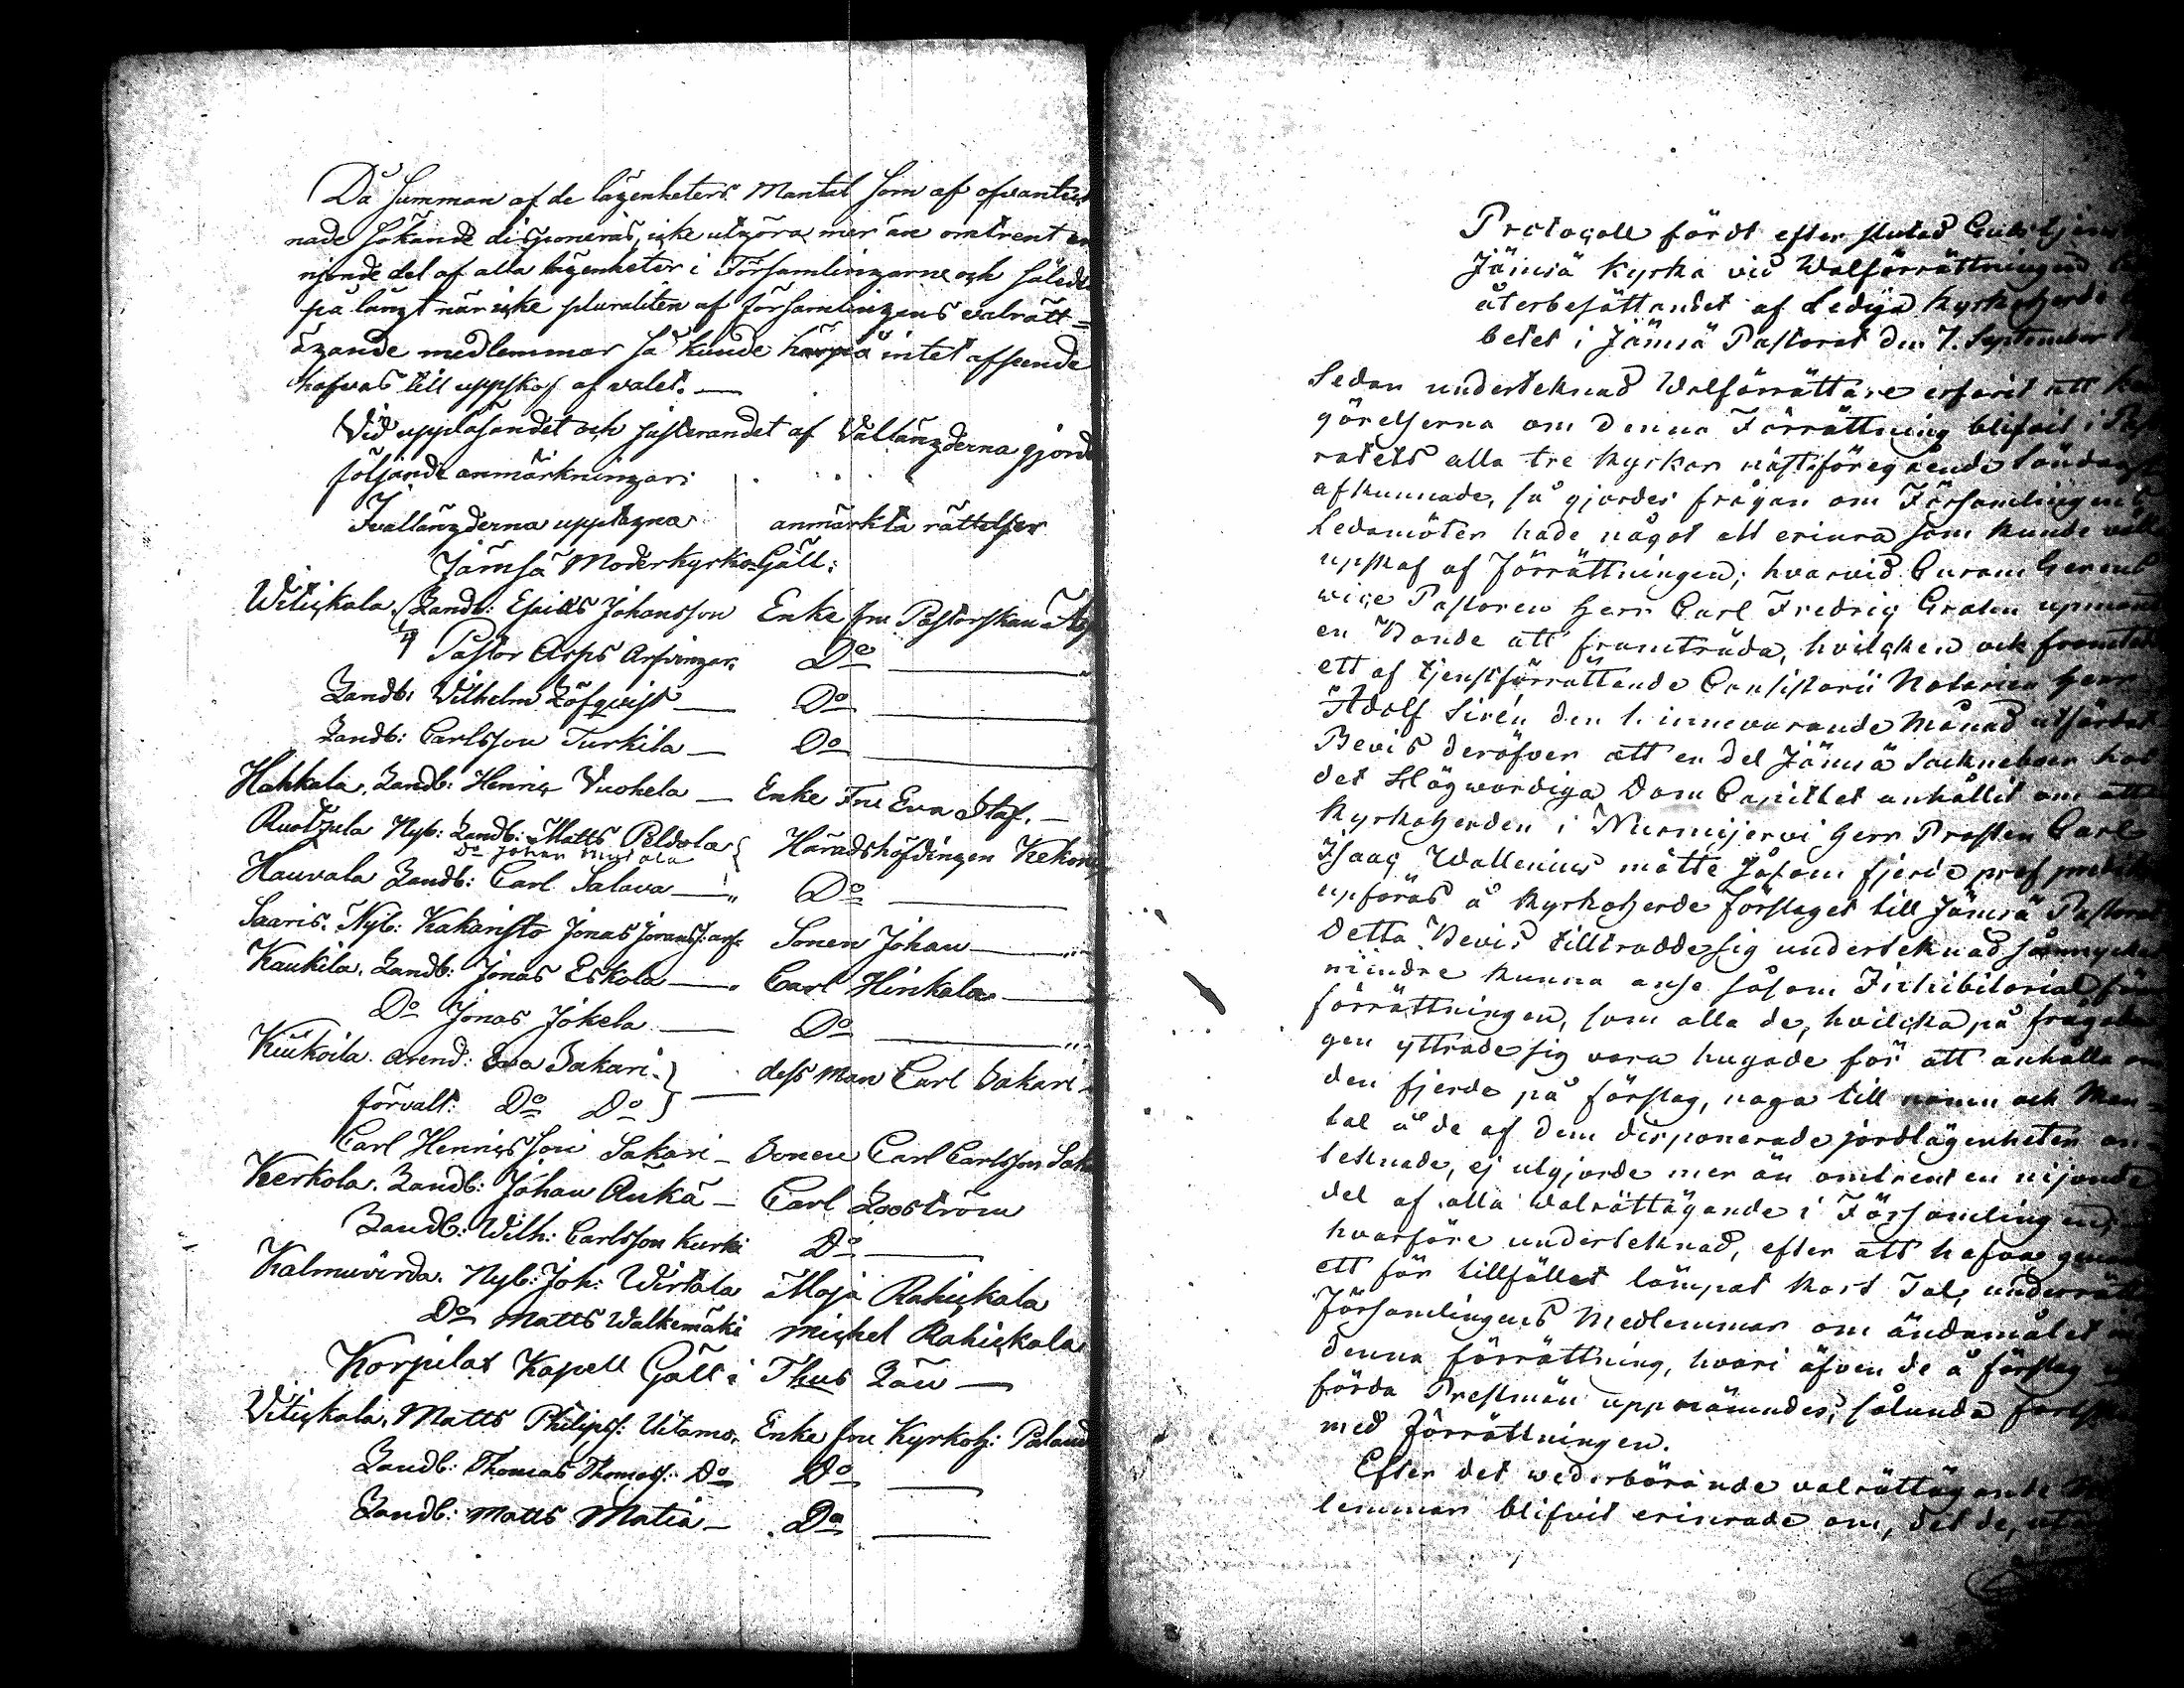 Då Summan af de lägenheters Mantal som af ofvanteck
nade sökande disponeras, icke utgöra mer än omtrent en
nijonde del af alla lägenheter i Församlingarne och således
på långt när icke pluraliten af församlingens valrätt=
ägande medlemmar så kunde härpå intet afseende
hafvas till uppskof af valet. —
Vid uppläsandet och justerandet af Vallängderna gjorde
följande anmärkningar:
I vallängderna upptagna anmärkta rättelser
Jämsä Moderkyrko Gäll:
Witickala. Landb: Johansson Enke fru Pastorskan
Pastor Arps Arfvingar. Do —
Landb: Vilhelm Löfqvist — Do —
Landb: Carlsson Turkila — Do —
Hahkala. Landb: Henric Vuohela — Enke Fru Eva Staf. —
Ruotzula Nyb: Landb: Matts Peldola Häradshöfdingen
Do Johan
Hauvala Landb: Carl Salava — Do —
Saaris. Nyb: Kakaristo Jonas Sonen Johan —
Kaukila. Landb: Jonas Eskola — Carl Hinkala —
Do Jonas Jokela — Do —
Arend: Eva Sakari. } — dess man Carl Sakari
förvalt: Do Do }
Carl Henricsson Sakari — Sonen Carl Carlsson
Kerkola. Landb: Johan — Carl
Landb: Wilh: Carlsson Kurki Do —
Nyb: Joh: Wirtala Maja Rahickala
Do Matts Walkemäki Michel Rahickala
Korpilax Kapell Gäll:
Vitickala. Matts Philipss: Uitamo. Enke fru Kyrkoh:
Landb: Thomas Thomass: Do Do —
Landb: Matts Matia — Do —
Protocoll fördt efter slutad Gudstjens
Jämsä Kyrka vid Walförrättningen
återbesättandet af Lediga Kyrkoherde
betet i Jämsä Pastorat den 7. September
Sedan undertecknad Walförrättare erfarit att kun
görelserna om denna Förrättning blifvit i Pasto
ratets alla tre Kyrkor nästföregående Söndag
afkunnade, så gjordes frågan om Församlingens
Ledamöter hade något att erinra som kunde vålla
upskof af Förrättningen; hvarvid
vice Pastoren Herr Carl Fredric upmanade
en Bonde att framträda, hvilcken ock framtedde
ett af tjenstförrättande Consistorii Notarien Herr
Adolf Sirén den 1. innevarande Månad utfärdat
Bevis deröfver att en del Jämsä Sockneboer hos
det Högwördiga Dom Capitlet anhållit om att
Kyrkoherden i Nurmijervi Herr Prosten Carl
Isaac Wallenius måtte såsom fjerde
upföras å Kyrkoherde förslaget till Jämsä Pastorat
Detta Bevis tilltrodde sig undertecknad så mycket
mindre kunna anse såsom Inhibitorial för
förrättningen, som alla de, hvilcka på frågade
gen yttrade sig vara hugade för att anhålla om
den fjerde på förslag, noga till namn och Man=
tal å de af dem disponerade jordlägenheter an=
tecknade, ej utgjorde mer än omtrent en nijonde
del af alla Walrättägande i Församlingen,
hvarföre undertecknad, efter att hafva
ett för tillfället lämpat kort Tal, underrätta
Församlingens Medlemmar om ändamålet med
denna förrättning, hvari äfven de å förslag up
förda Prestmän uppnämndes, sålunda fortskred
med Förrättningen.
Efter det wederbörande valrättägande
lemmar blifvit erinrade om, det de,